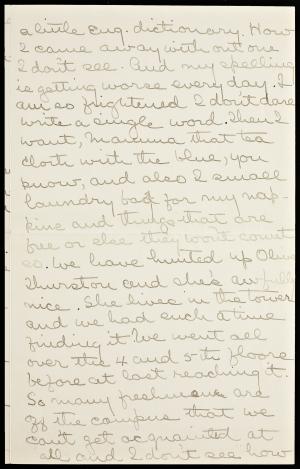 a little Eng. dictionary. How
I came away with out one
I don't see. And my spelling
is getting worse every day. I
am so frightened I don't dare
write a single word. Then I
want, Mamma that tea
cloth with the blue, you
know, and also 2 small
laundry bags for my nap-
kins and things that are
free or else they won't count
so. We have hunted up Olive
Thurston and she's awfully
nice. She lives in the tower
and we had such a time
finding it. We went all
over the 4 and 5-th floors
before at last reaching it.
So many freshmen are
off the campus that we
can't get acquainted at
all and I don't see how